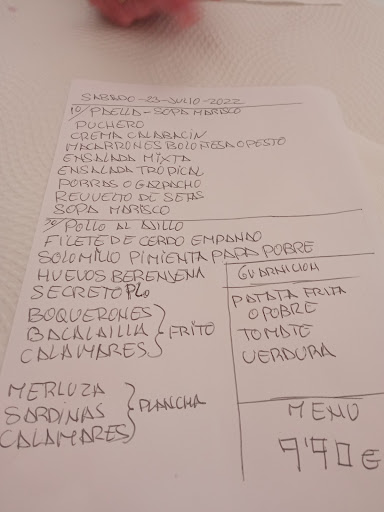 SABADO-23-JULIO-2022
1º/PAELLA-SOPA MARISCO
PUCHERO
CREMA CALABACIN
MACARRONES BOLOÑESA O PESTO
ENSALADA MIXTA
ENSALADA TROPICAL
PORRAS O GAZPACHO
REVUELTO DE SETAS
SOPA MARISCO
2º/POLLO AL AJILLO
FILETE DE CERDO EMPANADO
SOLOMILLO PIMIENTA PAPA POBRE
HUEVOS BERENJENA
SECRETO PLO
BOQUERONES
BACALAILLA
CALAMARES
FRITO
MERLUZA
SARDINAS
CALAMARES
PLANCHA
GUARNICION
PATATA FRITA
O POBRE
TOMATE
VERDURA
MENU
9'90€